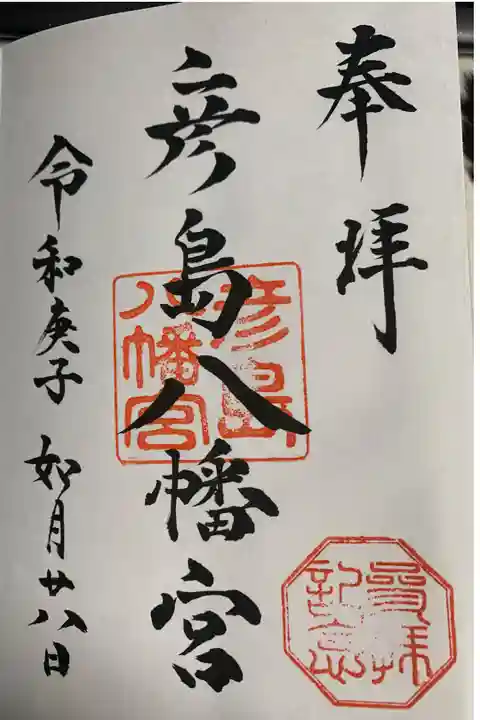 奉拝
彦島八幡宮
令和庚子 如月廿八日
彦島八幡宮
參拝記念